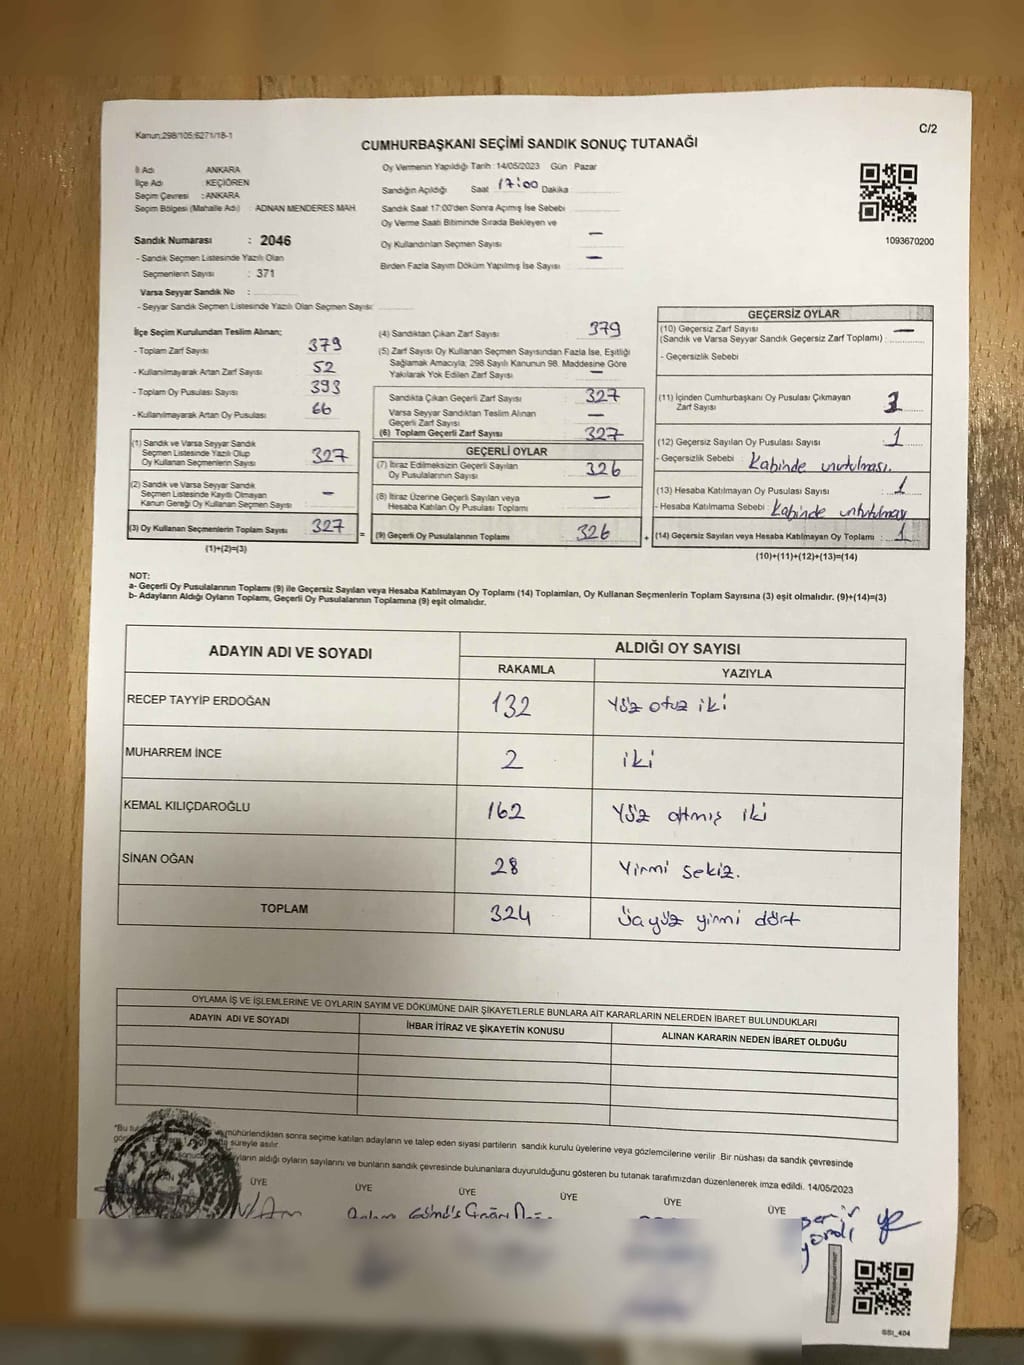 Kanun:298/105;6271/18-1
C/2
CUMHURBAŞKANI SEÇİMİ SANDIK SONUÇ TUTANAĞI
İl Adı ANKARA
İlçe Adı : KEÇİÖREN
Seçim Çevresi : ANKARA
Seçim Bölgesi (Mahalle Adı) : ADNAN MENDERES MAH.
Sandık Numarası : 2046
- Sandık Seçmen Listesinde Yazılı Olan
Seçmenlerin Sayısı : 371
Varsa Seyyar Sandık No :
- Seyyar Sandık Seçmen Listesinde Yazılı Olan Seçmen Sayısı:
Oy Vermenin Yapıldığı Tarih : 14/05/2023 Gün : Pazar
Sandığın Açıldığı Saat 17:00 Dakika
Sandık Saat 17:00'den Sonra Açımış İse Sebebi
Oy Verme Saati Bitiminde Sırada Bekleyen ve
Oy Kullandırılan Seçmen Sayısı —
Birden Fazla Sayım Döküm Yapılmış İse Sayısı —
1093670200
İlçe Seçim Kurulundan Teslim Alınan;
- Toplam Zarf Sayısı 379
- Kullanılmayarak Artan Zarf Sayısı 52
- Toplam Oy Pusulası Sayısı 393
- Kullanılmayarak Artan Oy Pusulası 66
(1) Sandık ve Varsa Seyyar Sandık
Seçmen Listesinde Yazılı Olup
Oy Kullanan Seçmenlerin Sayısı 327
(2) Sandık ve Varsa Seyyar Sandık
Seçmen Listesinde Kayıtlı Olmayan
Kanun Gereği Oy Kullanan Seçmen Sayısı —
(3) Oy Kullanan Seçmenlerin Toplam Sayısı 327
(1)+(2)=(3)
(4) Sandıktan Çıkan Zarf Sayısı 379
(5) Zarf Sayısı Oy Kullanan Seçmen Sayısından Fazla İse, Eşitliği
Sağlamak Amacıyla; 298 Sayılı Kanunun 98. Maddesine Göre
Yakılarak Yok Edilen Zarf Sayısı —
Sandıkta Çıkan Geçerli Zarf Sayısı 327
Varsa Seyyar Sandıktan Teslim Alınan
Geçerli Zarf Sayısı —
(6) Toplam Geçerli Zarf Sayısı 327
GEÇERLİ OYLAR
(7) İtiraz Edilmeksizin Geçerli Sayılan
Oy Pusulalarının Sayısı 326
(8) İtiraz Üzerine Geçerli Sayılan veya
Hesaba Katılan Oy Pusulaları Toplamı —
= (9) Geçerli Oy Pusulalarının Toplamı 326
GEÇERSİZ OYLAR
(10) Geçersiz Zarf Sayısı —
(Sandık ve Varsa Seyyar Sandık Geçersiz Zarf Toplamı) :
- Geçersizlik Sebebi
(11) İçinden Cumhurbaşkanı Oy Pusulası Çıkmayan
Zarf Sayısı
(12) Geçersiz Sayılan Oy Pusulası Sayısı 1
- Geçersizlik Sebebi : Kabinde unutulması.
(13) Hesaba Katılmayan Oy Pusulası Sayısı 1
- Hesaba Katılmama Sebebi : Kabinde
+ (14) Geçersiz Sayılan veya Hesaba Katılmayan Oy Toplamı : 1
(10)+(11)+(12)+(13)=(14)
NOT:
a- Geçerli Oy Pusulalarının Toplamı (9) ile Geçersiz Sayılan veya Hesaba Katılmayan Oy Toplamı (14) Toplamları, Oy Kullanan Seçmenlerin Toplam Sayısına (3) eşit olmalıdır. (9)+(14)=(3)
b- Adayların Aldığı Oyların Toplamı, Geçerli Oy Pusulalarının Toplamına (9) eşit olmalıdır.
ADAYIN ADI VE SOYADI
ALDIĞI OY SAYISI
RAKAMLA YAZIYLA
RECEP TAYYİP ERDOĞAN 132 Yüz otuz iki
MUHARREM İNCE 2 iki
KEMAL KILIÇDAROĞLU 162 Yüz altmış iki
SİNAN OĞAN 28 Yirmi sekiz.
TOPLAM 324 Üçyüz yirmi dört
OYLAMA İŞ VE İŞLEMLERİNE VE OYLARIN SAYIM VE DÖKÜMÜNE DAİR ŞİKAYETLERLE BUNLARA AİT KARARLARIN NELERDEN İBARET BULUNDUKLARI
ADAYIN ADI VE SOYADI İHBAR İTİRAZ VE ŞİKAYETİN KONUSU ALINAN KARARIN NEDEN İBARET OLDUĞU
*Bu mühürlendikten sonra seçime katılan adayların ve talep eden siyasi partilerin sandık kurulu üyelerine veya gözlemcilerine verilir .Bir nüshası da sandık çevresinde
süreyle asılır
aldığı oyların sayılarını ve bunların sandık çevresinde bulunanlara duyurulduğunu gösteren bu tutanak tarafımızdan düzenlenerek imza edildi. 14/05/2023
ÜYE ÜYE ÜYE ÜYE ÜYE ÜYE
SSI_404